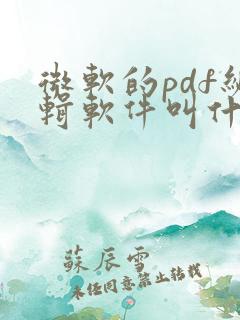 微軟的pdf編
輯軟件叫什
蘇辰雪
未经同意禁止转载